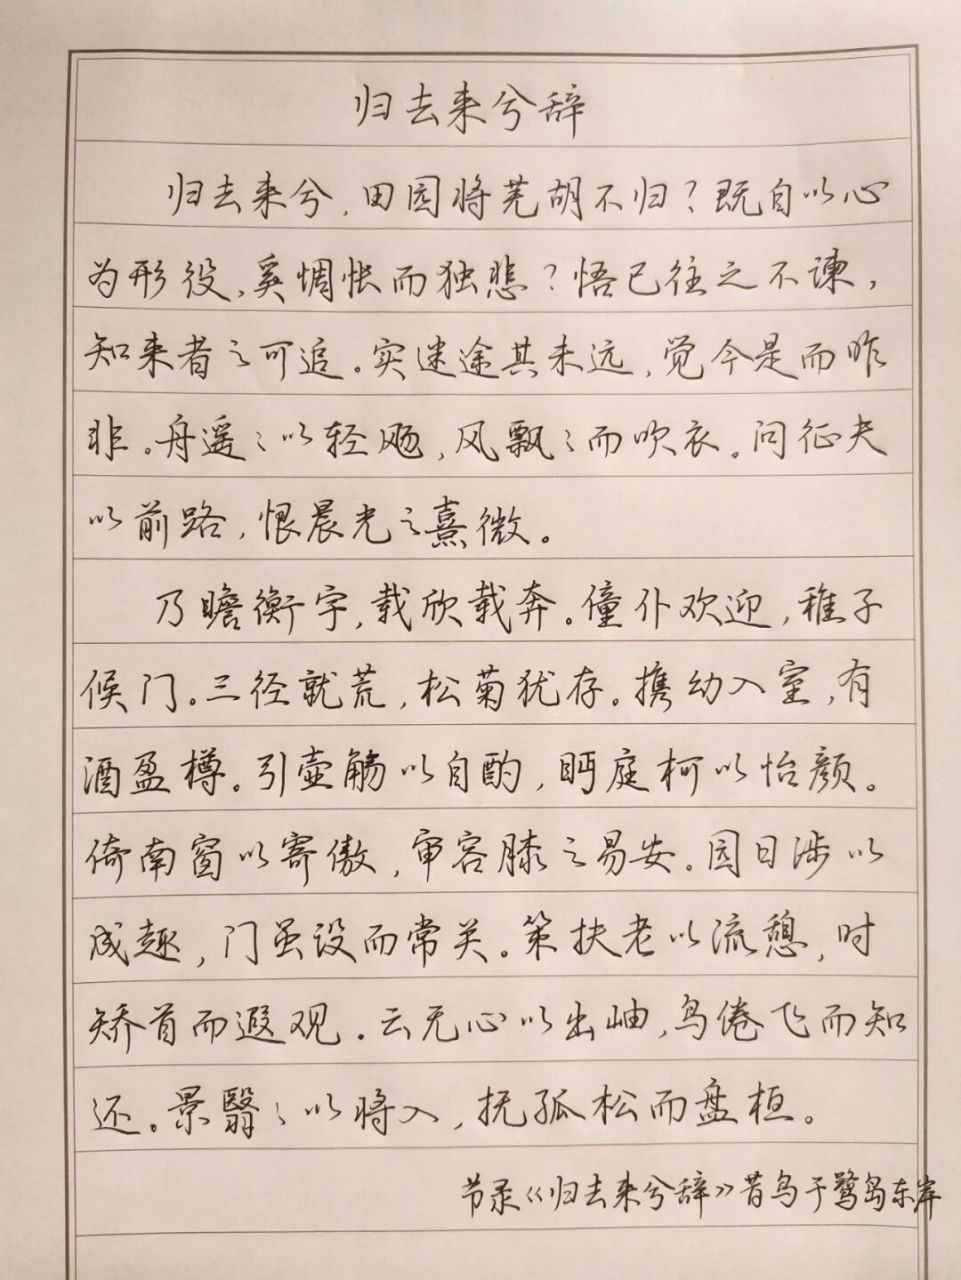 归去来兮辞
归去来兮,田园将芜胡不归?既自以心
为形役,奚惆怅而独悲?悟已往之不谏,
知来者之可追。实迷途其未远,觉今是而昨
非。舟遥遥以轻飏,风飘飘而吹衣。问征夫
以前路,恨晨光之熹微。
乃瞻衡宇,载欣载奔。僮仆欢迎,稚子
候门。三径就荒,松菊犹存。携幼入室,有
酒盈樽。引壶觞以自酌,眄庭柯以怡颜。
倚南窗以寄傲,审容膝之易安。园日涉以
成趣,门虽设而常关。策扶老以流憩,时
矫首而遐观。云无心以出岫,鸟倦飞而知
还。景翳翳以将入,抚孤松而盘桓。
节录《归去来兮辞》昔鸟于鹭岛东岸